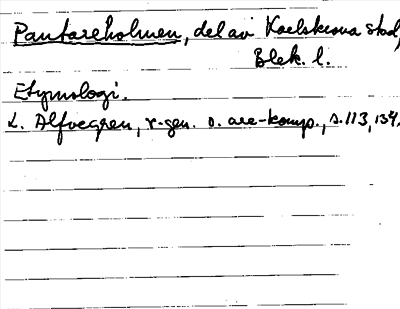 Pantareholmen, del av Karlskrona stad,
Blek. l.
Etymologi.
L. Alfvegren, r-gen. o. are-komp., s. 113, 134.